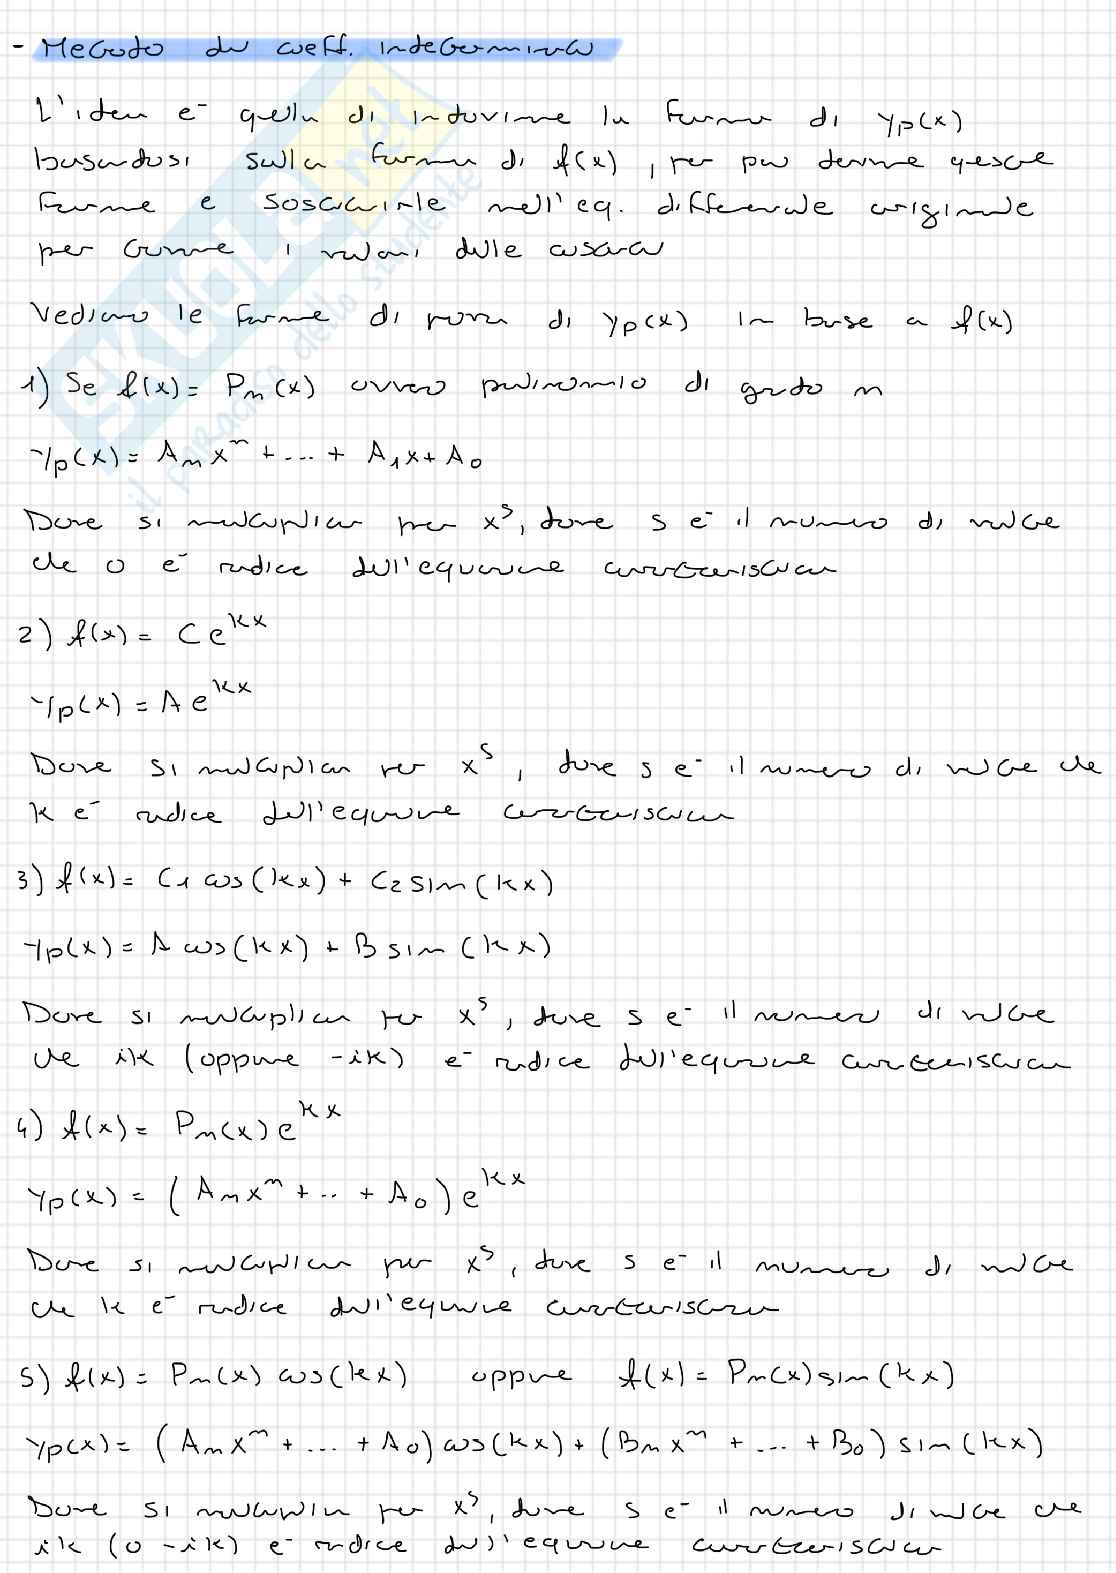 - Metodo dei coeff. indeterminati
L'idea è quella di indovinare la forma di yp(x)
basandosi sulla forma di f(x), per poi derivare queste
forme e sostituirle nell'eq. differenziale originale
per trovare i valori delle costanti
Vediamo le forme di prova di yp(x) in base a f(x)
1) Se f(x) = Pn(x) ovvero polinomio di grado n
yp(x) = Anxⁿ + ... + A1x + A0
Dove si moltiplica per xˢ, dove s è il numero di volte
che 0 è radice dell'equazione caratteristica
2) f(x) = Ce^kx
yp(x) = Ae^kx
Dove si moltiplica per xˢ, dove s è il numero di volte che
k è radice dell'equazione caratteristica
3) f(x) = C1 cos(kx) + C2 sin(kx)
yp(x) = A cos(kx) + B sin(kx)
Dove si moltiplica per xˢ, dove s è il numero di volte
che ik (oppure -ik) è radice dell'equazione caratteristica
4) f(x) = Pn(x)e^kx
yp(x) = (Anxⁿ + .. + A0)e^kx
Dove si moltiplica per xˢ, dove s è il numero di volte
che k è radice dell'equazione caratteristica
5) f(x) = Pn(x) cos(kx) oppure f(x) = Pn(x) sin(kx)
yp(x) = (Anxⁿ + ... + A0) cos(kx) + (Bnxⁿ + ... + B0) sin(kx)
Dove si moltiplica per xˢ, dove s è il numero di volte che
ik (o -ik) è radice dell'equazione caratteristica
SKUOLA.net
il paradiso dello studente